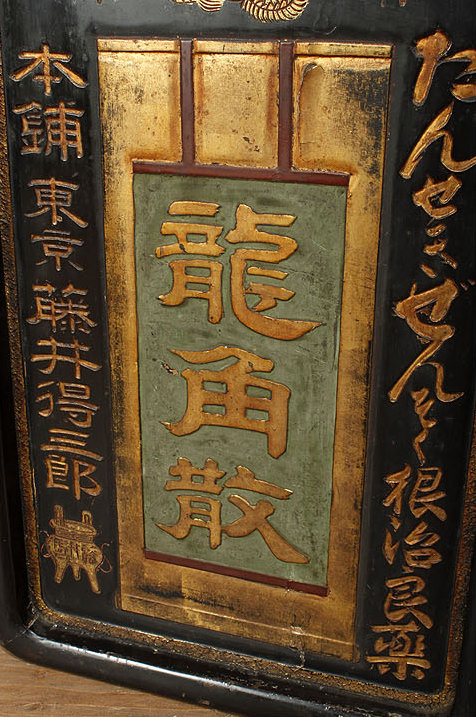 たんせきぜんそく根治良薬
龍角散
本舗 東京 藤井得三郎